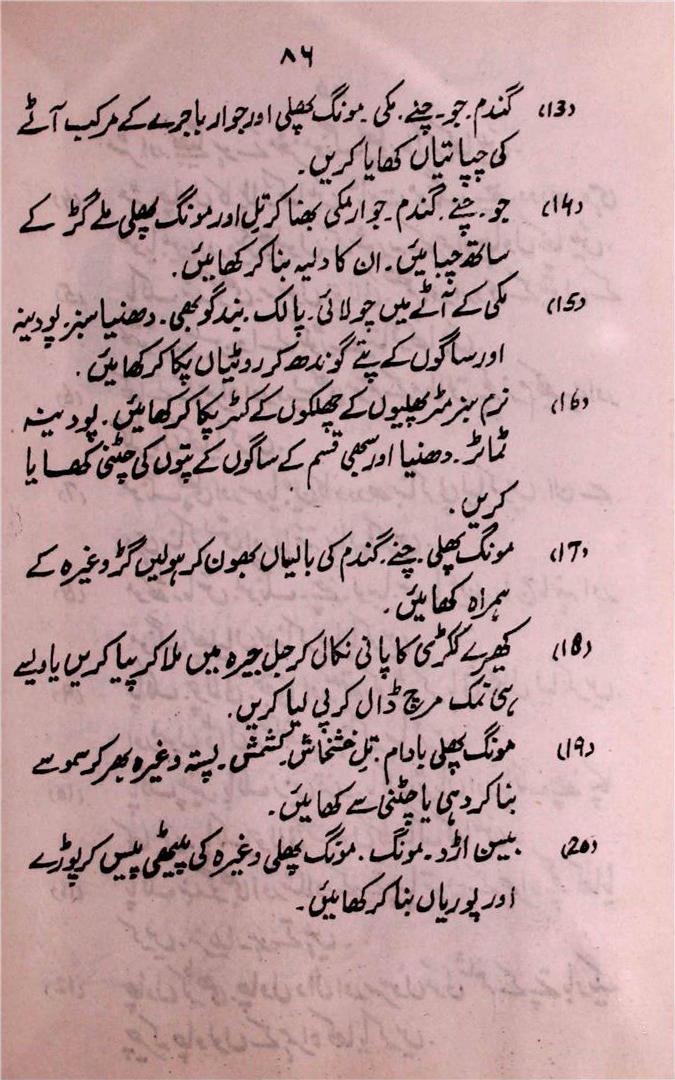 ۸۶
(13) گندم۔ جو۔ چنے۔ مکی۔ مونگ پھلی اور جوار باجرے کے مرکب آٹے
کی چپاتیاں کھایا کریں۔
(14) جو۔ چنے۔ گندم۔ جوار مکی بھنا کر تل اور مونگ پھلی ملے گڑ کے
ساتھ چبائیں۔ ان کا دلیہ بنا کر کھائیں۔
(15) مکی کے آٹے میں چولائی۔ پالک۔ بند گوبھی۔ دھنیا سبز۔ پودینہ
اور ساگوں کے پتے گوندھ کر روٹیاں پکا کر کھائیں۔
(16) نرم سبز مٹر پھلیوں کے چھلکوں کے کٹر پکا کر کھائیں۔ پودینہ
ٹماٹر۔ دھنیا اور سبھی قسم کے ساگوں کے پتوں کی چٹنی کھایا
کریں۔
(17) مونگ پھلی۔ چنے۔ گندم کی بالیاں بھون کر ہولیں گڑ وغیرہ کے
ہمراہ کھائیں۔
(18) کھیرے ککڑی کا پانی نکال کر جل جیرہ میں ملا کر پیا کریں یا ویسے
ہی نمک مرچ ڈال کر پی لیا کریں۔
(19) مونگ پھلی بادام۔ تل۔ خشخاش۔ کشمش۔ پستہ وغیرہ بھر کر سموسے
بنا کر دہی یا چٹنی سے کھائیں۔
(20) بیسن اڑد۔ مونگ۔ مونگ پھلی وغیرہ کی پیٹھی پیس کر پوڑے
اور پوریاں بنا کر کھائیں۔